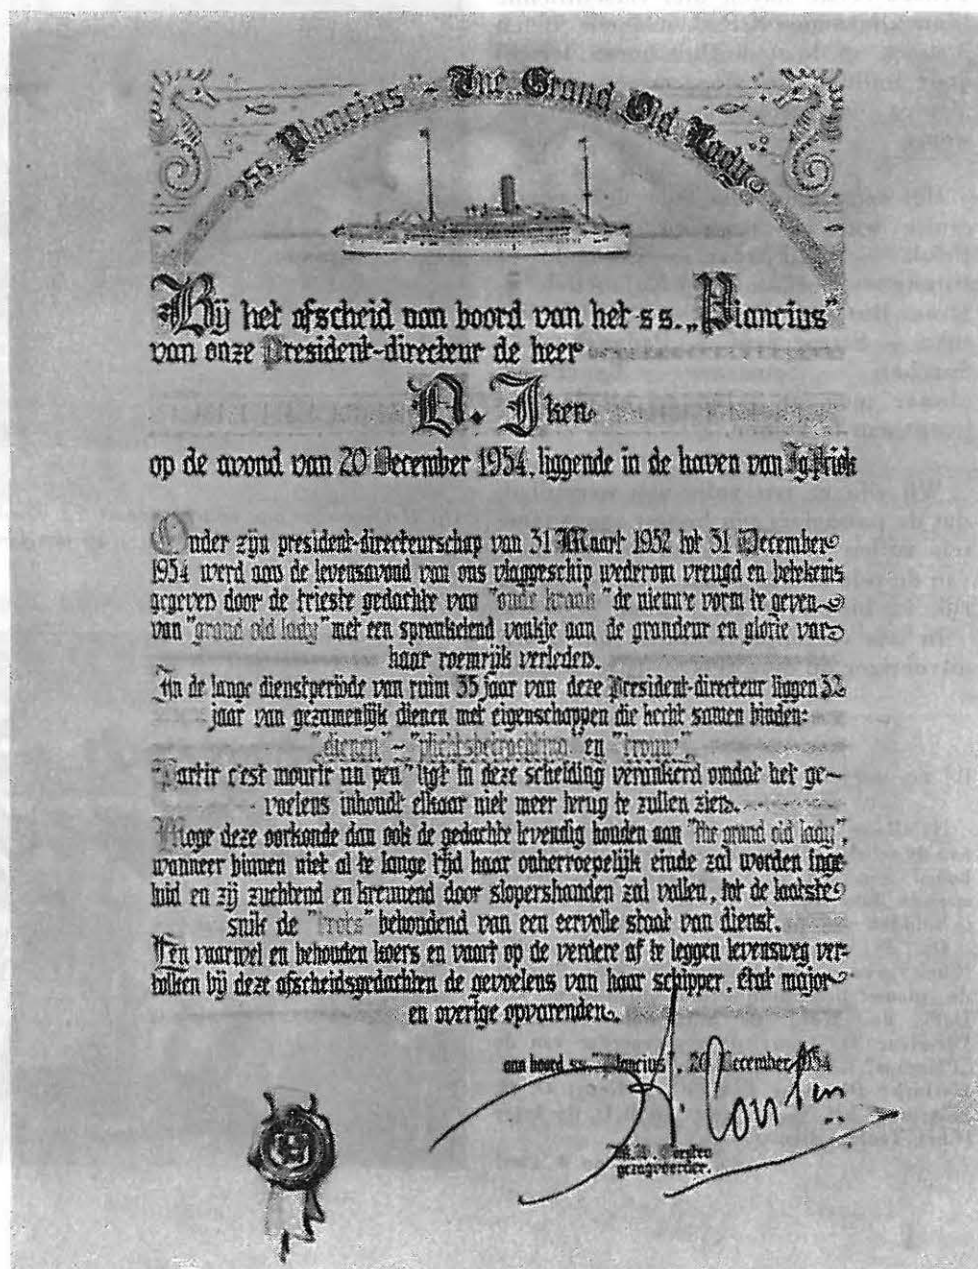 ss. Plancius - The Grand Old Lady
Bij het afscheid aan boord van het s s. „Plancius"
van onze President-directeur de heer
D. Iken
op de avond van 20 December 1954, liggende in de haven van Tg Priok
Onder zijn president-directeurschap van 31 Maart 1952 tot 31 December
1954 werd aan de levensavond van ons vlaggeschip wederom vreugd en betekenis
gegeven door de trieste gedachte van "oude kraak" de nieuwe vorm te geven
van "grand old lady" met een sprankelend vonkje aan de grandeur en glorie van
haar roemrijk verleden.
In de lange dienstperiode van ruim 35 jaar van deze President-directeur liggen 32
jaar van gezamenlijk dienen met eigenschappen die hecht samen binden:
"dienen" - "plichtsbetrachting" en "trouw".
"Partir c'est mourir un peu" ligt in deze scheiding verankerd omdat het ge-
voelens inhoudt elkaar niet meer terug te zullen zien.
Moge deze oorkonde dan ook de gedachte levendig houden aan "the grand old lady",
wanneer binnen niet al te lange tijd haar onherroepelijk einde zal worden inge
luid en zij zuchtend en kreunend door slopershanden zal vallen, tot de laatste
snik de "trots" behoudend van een eervolle staat van dienst.
Een vaarwel en behouden koers en vaart op de verdere af te leggen levensweg ver-
tolken bij deze afscheidsgedachten de gevoelens van haar schipper, état major
en overige opvarenden.
aan boord ss. "Plancius", 20 December 1954
gezagvoerder.